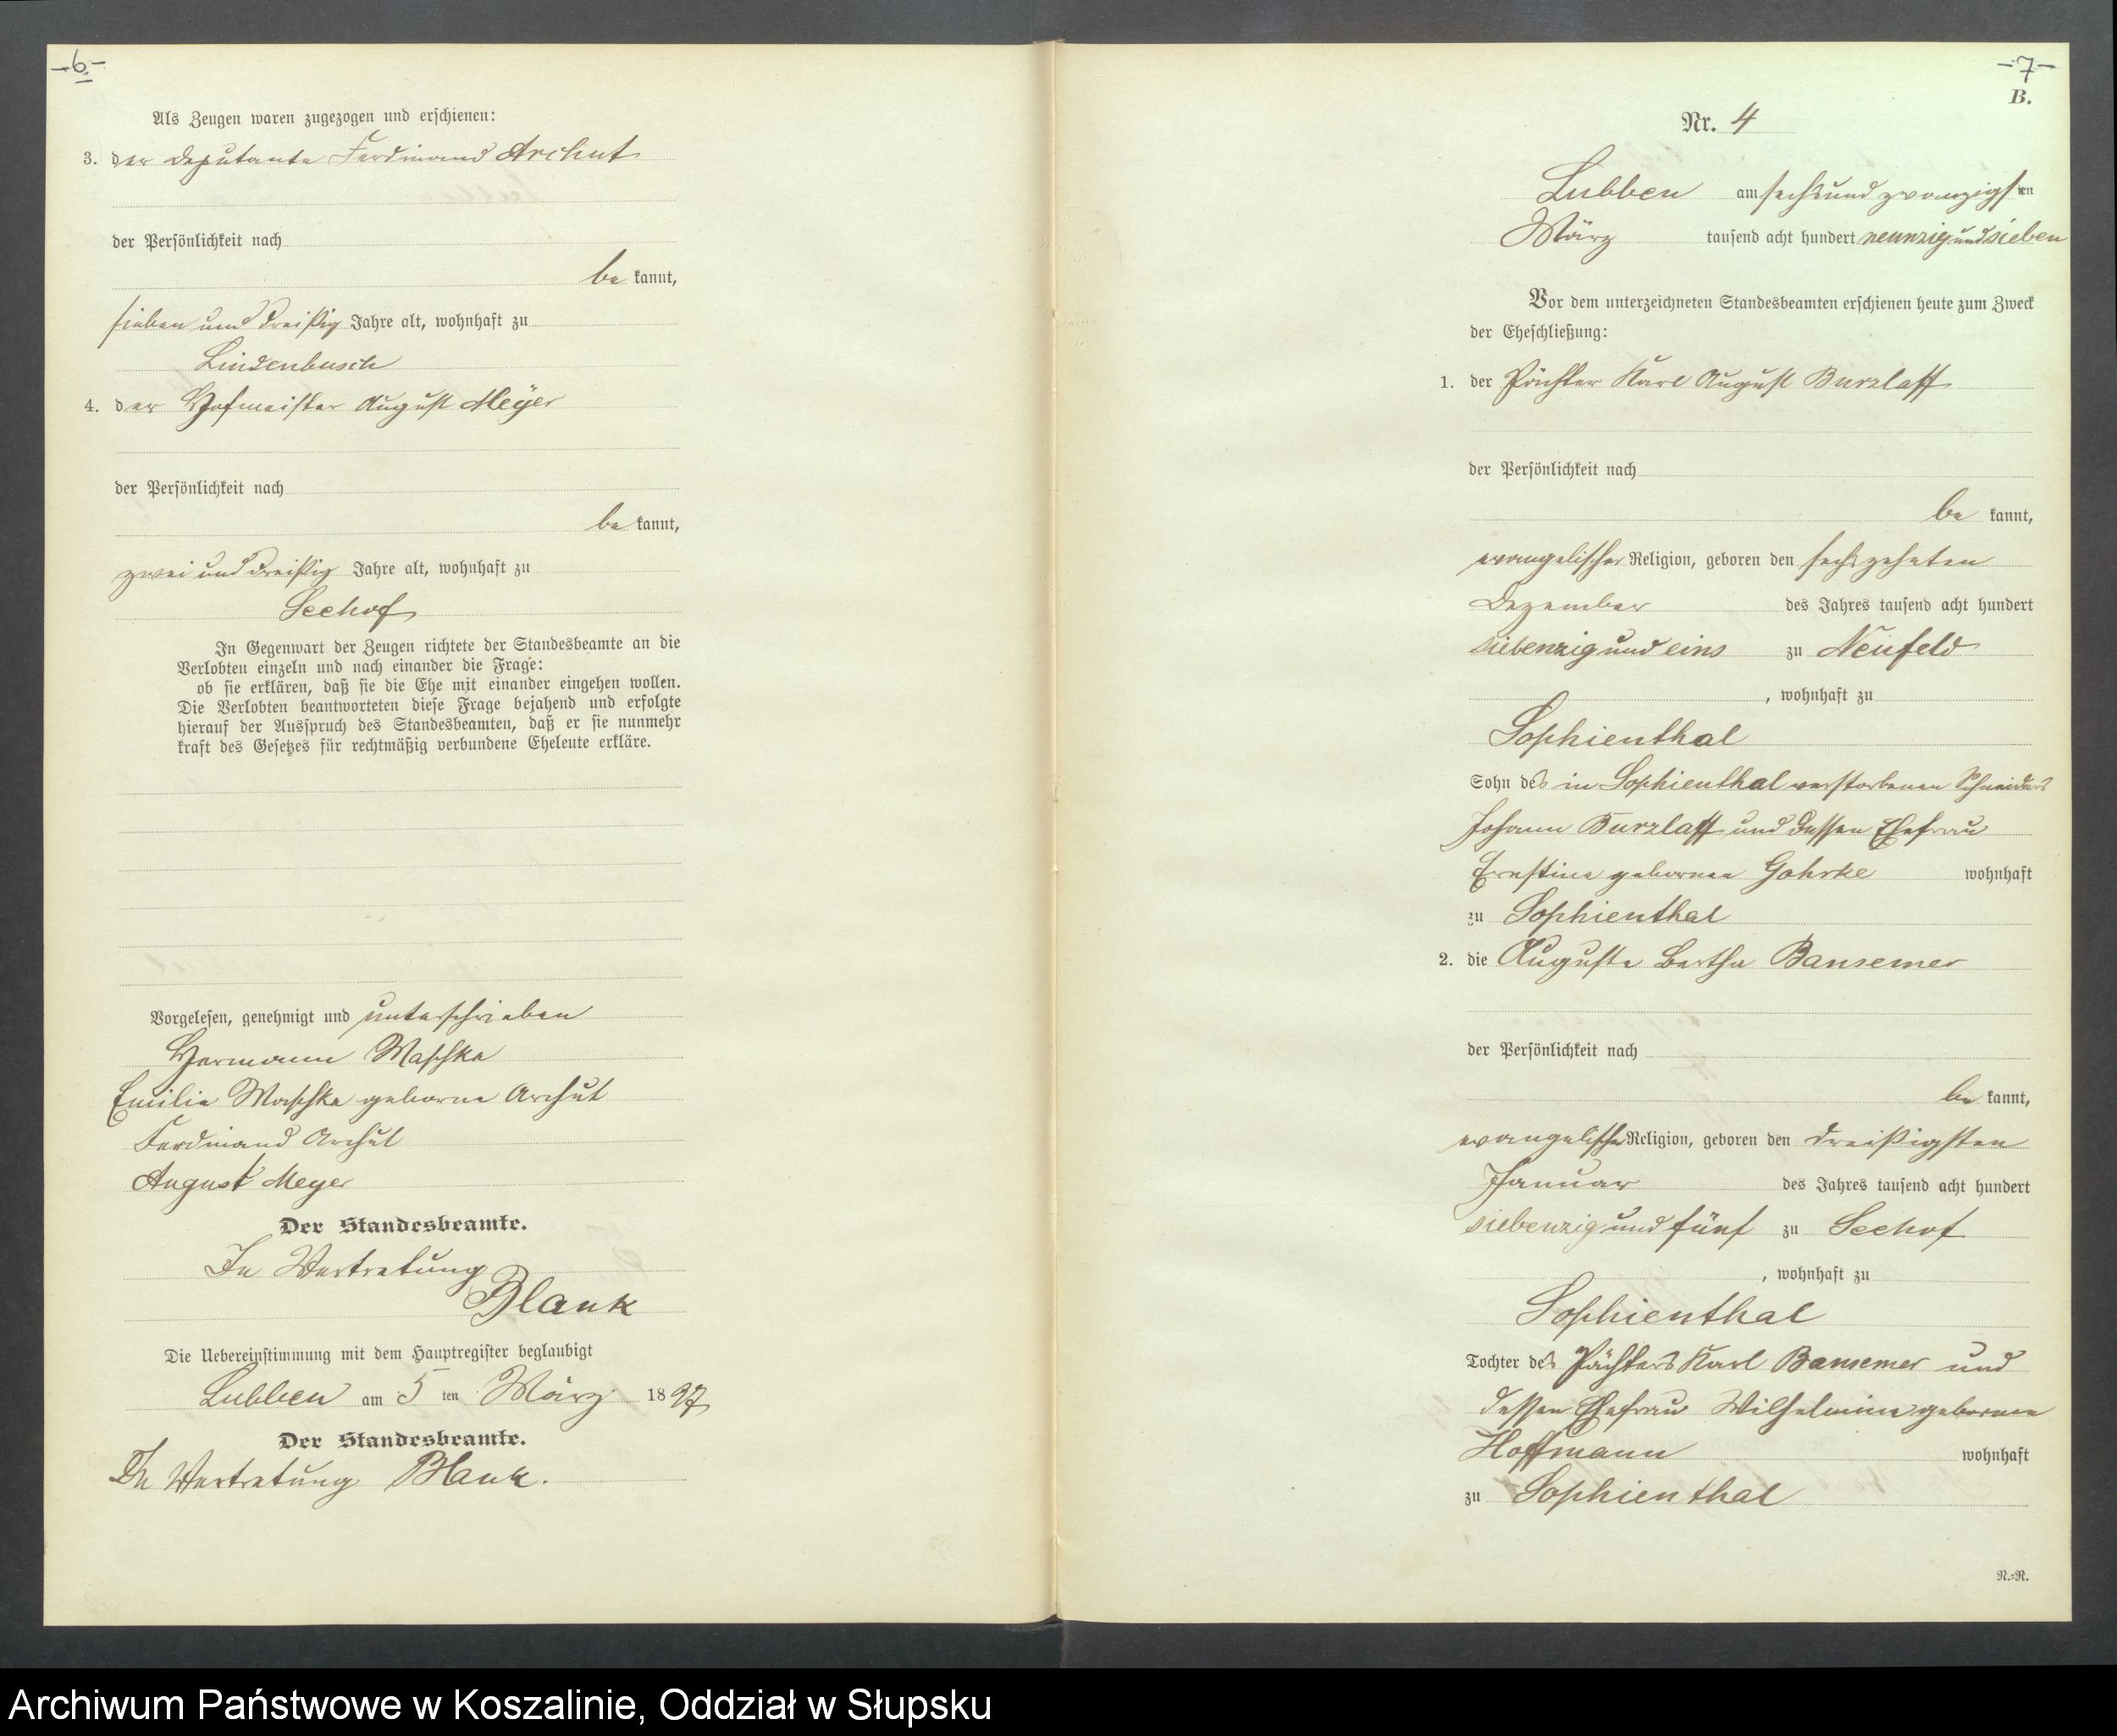 -6.-
Als Zeugen waren zugezogen und erschienen:
3. der Deputante Ferdinand Archut
der Persönlichkeit nach
be kannt,
sieben und dreißig Jahre alt, wohnhaft zu
Lindenbusch
4. der Hofmeister August Meÿer
der Persönlichkeit nach
be kannt,
zwei und dreißig Jahre alt, wohnhaft zu
Seehof
In Gegenwart der Zeugen richtete der Standesbeamte an die
Verlobten einzeln und nach einander die Frage:
ob sie erklären, daß sie die Ehe mit einander eingehen wollen.
Die Verlobten beantworteten diese Frage bejahend und erfolgte
hierauf der Ausspruch des Standesbeamten, daß er sie nunmehr
kraft des Gesetzes für rechtmäßig verbundene Eheleute erkläre.
Vorgelesen, genehmigt und unterschrieben
Hermann Maschke
Emilie Maschke geborne Archut
Ferdinand Archut
August Meyer
Der Standesbeamte.
In Vertretung
Blank
Die Uebereinstimmung mit dem Hauptregister beglaubigt
Lubben am 5 ten März 1897
Der Standesbeamte.
In Vertretung Blank.
-7-
B.
Nr. 4
Lubben am sechsundzwanzigsten
März tausend acht hundert neunzig und sieben
Vor dem unterzeichneten Standesbeamten erschienen heute zum Zweck
der Eheschließung:
1. der Pächter Karl August Burzlaff
der Persönlichkeit nach
be kannt,
evangelischer Religion, geboren den sechszehnten
Dezember des Jahres tausend acht hundert
siebenzig und eins zu Neufeld
, wohnhaft zu
Sophienthal
Sohn des in Sophienthal verstorbenen Schneiders
Johann Burzlaff und dessen Ehefrau
Ernstine geborene Gohrke wohnhaft
zu Sophienthal
2. die Auguste Bertha Bansemer
der Persönlichkeit nach
be kannt,
evangelischer Religion, geboren den dreißigsten
Januar des Jahres tausend acht hundert
siebenzig und fünf zu Seehof
, wohnhaft zu
Sophienthal
Tochter des Pächters Karl Bansemer und
dessen Ehefrau Wilhelmine geborene
Hoffmann wohnhaft
zu Sophienthal
N.=R.
Archiwum Państwowe w Koszalinie, Oddział w Słupsku